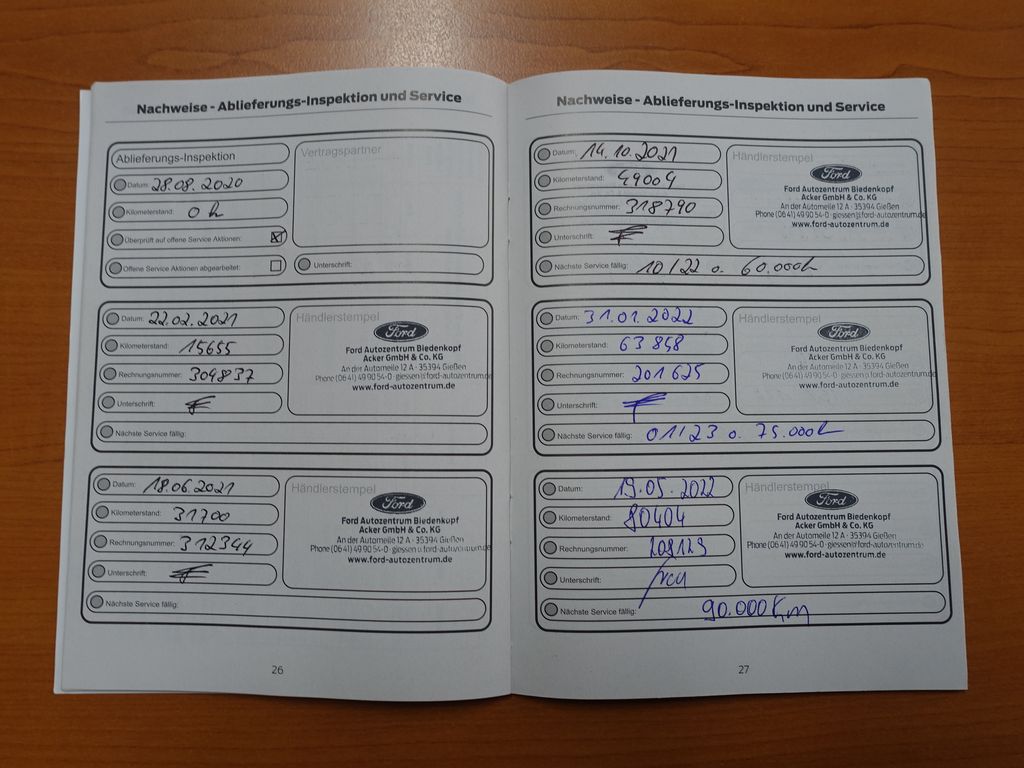 Nachweise - Ablieferungs-Inspektion und Service
Ablieferungs-Inspektion
Datum: 28.08.2020
Kilometerstand: 0 h
Überprüft auf offene Service Aktionen:
Offene Service Aktionen abgearbeitet:
Vertragspartner
Unterschrift:
Datum: 22.02.2021
Kilometerstand: 15655
Rechnungsnummer: 309837
Unterschrift:
Nächste Service fällig:
Händlerstempel
Ford
Ford Autozentrum Biedenkopf
Acker GmbH & Co. KG
An der Automeile 12 A · 35394 Gießen
Phone (06 41) 49 90 54-0 · giessen@ford-autozentrum.de
www.ford-autozentrum.de
Datum: 18.06.2021
Kilometerstand: 31700
Rechnungsnummer: 312344
Unterschrift:
Nächste Service fällig:
Händlerstempel
Ford
Ford Autozentrum Biedenkopf
Acker GmbH & Co. KG
An der Automeile 12 A · 35394 Gießen
Phone (06 41) 49 90 54-0 · giessen@ford-autozentrum.de
www.ford-autozentrum.de
26
Nachweise - Ablieferungs-Inspektion und Service
Datum: 14.10.2021
Kilometerstand: 49004
Rechnungsnummer: 318790
Unterschrift:
Nächste Service fällig: 10/22 o. 60.000h
Händlerstempel
Ford
Ford Autozentrum Biedenkopf
Acker GmbH & Co. KG
An der Automeile 12 A · 35394 Gießen
Phone (06 41) 49 90 54-0 · giessen@ford-autozentrum.de
www.ford-autozentrum.de
Datum: 31.01.2022
Kilometerstand: 63848
Rechnungsnummer: 201625
Unterschrift:
Nächste Service fällig: 01/23 o. 75.000h
Händlerstempel
Ford
Ford Autozentrum Biedenkopf
Acker GmbH & Co. KG
An der Automeile 12 A · 35394 Gießen
Phone (06 41) 49 90 54-0 · giessen@ford-autozentrum.de
www.ford-autozentrum.de
Datum: 19.05.2022
Kilometerstand: 80404
Rechnungsnummer: 208129
Unterschrift:
Nächste Service fällig: 90.000 Km
Händlerstempel
Ford
Ford Autozentrum Biedenkopf
Acker GmbH & Co. KG
An der Automeile 12 A · 35394 Gießen
Phone (06 41) 49 90 54-0 · giessen@ford-autozentrum.de
www.ford-autozentrum.de
27